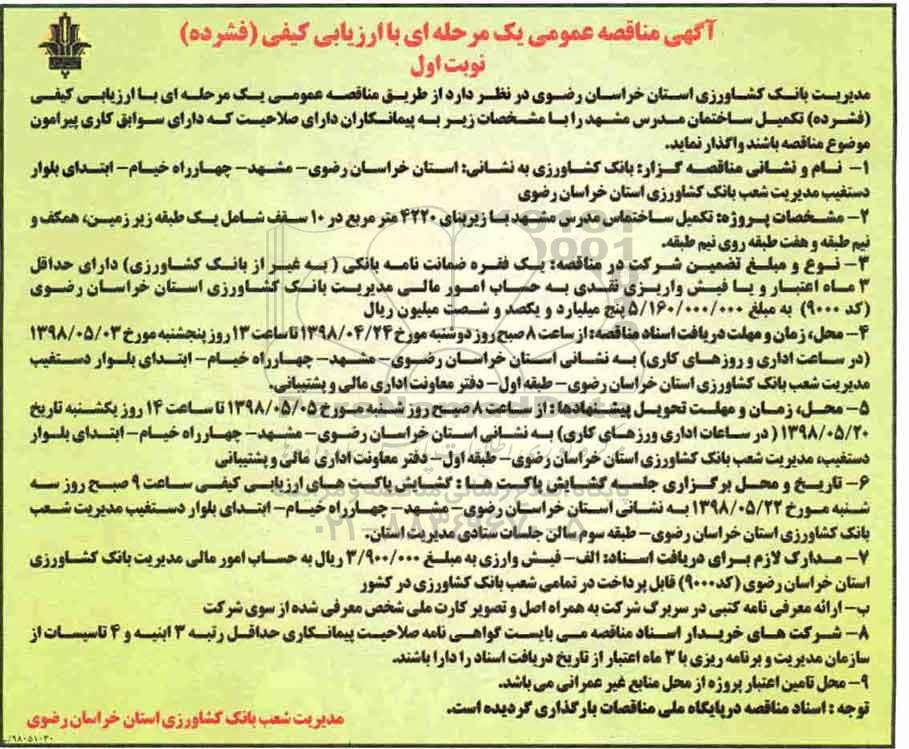 آگهی مناقصه عمومی یک مرحله ای با ارزیابی کیفی (فشرده)
نوبت اول
مدیریت بانک کشاورزی استان خراسان رضوی در نظر دارد از طریق مناقصه عمومی یک مرحله ای با ارزیابی کیفی
(فشرده) تکمیل ساختمان مدرس مشهد را با مشخصات زیر به پیمانکاران دارای صلاحیت که دارای سوابق کاری پیرامون
موضوع مناقصه باشند واگذار نماید.
۱- نام و نشانی مناقصه گزار: بانک کشاورزی به نشانی: استان خراسان رضوی- مشهد- چهارراه خیام- ابتدای بلوار
دستغیب مدیریت شعب بانک کشاورزی استان خراسان رضوی
۲- مشخصات پروژه: تکمیل ساختماس مدرس مشهد با زیربنای ۴۲۲۰ متر مربع در ۱۰ سقف شامل یک طبقه زیر زمین، همکف و
نیم طبقه و هفت طبقه روی نیم طبقه.
۳- نوع و مبلغ تضمین شرکت در مناقصه: یک فقره ضمانت نامه بانکی ( به غیر از بانک کشاورزی) دارای حداقل
۳ ماه اعتبار و یا فیش واریزی نقدی به حساب امور مالی مدیریت بانک کشاورزی استان خراسان رضوی
(کد ۹۰۰۰) به مبلغ ۵/۱۶۰/۰۰۰/۰۰۰ پنج میلیارد و یکصد و شصت میلیون ریال
۴- محل، زمان و مهلت دریافت اسناد مناقصه: از ساعت ۸ صبح روز دوشنبه مورخ ۱۳۹۸/۰۴/۲۴ تا ساعت ۱۳ روز پنجشنبه مورخ ۱۳۹۸/۰۵/۰۳
(در ساعت اداری و روزهای کاری) به نشانی استان خراسان رضوی- مشهد- چهارراه خیام- ابتدای بلوار دستغیب
مدیریت شعب بانک کشاورزی استان خراسان رضوی- طبقه اول- دفتر معاونت اداری مالی و پشتیبانی.
۵- محل، زمان و مهلت تحویل پیشنهادها : از ساعت ۸ صبح روز شنبه مورخ ۱۳۹۸/۰۵/۰۵ تا ساعت ۱۴ روز یکشنبه تاریخ
۱۳۹۸/۰۵/۲۰ ( در ساعات اداری ورزهای کاری) به نشانی استان خراسان رضوی- مشهد- چهارراه خیام- ابتدای بلوار
دستغیب، مدیریت شعب بانک کشاورزی استان خراسان رضوی- طبقه اول- دفتر معاونت اداری مالی و پشتیبانی
۶- تاریخ و محل برگزاری جلسه گشایش پاکت ها : گشایش پاکت های ارزیابی کیفی ساعت ۹ صبح روز سه
شنبه مورخ ۱۳۹۸/۰۵/۲۲ به نشانی استان خراسان رضوی- مشهد- چهارراه خیام- ابتدای بلوار دستغیب مدیریت شعب
بانک کشاورزی استان خراسان رضوی- طبقه سوم سالن جلسات ستادی مدیریت استان.
۷- مدارک لازم برای دریافت اسناد: الف- فیش وارزی به مبلغ ۳/۹۰۰/۰۰۰ ریال به حساب امور مالی مدیریت بانک کشاورزی
استان خراسان رضوی (کد ۹۰۰۰) قابل پرداخت در تمامی شعب بانک کشاورزی در کشور
ب- ارائه معرفی نامه کتبی در سربرگ شرکت به همراه اصل و تصویر کارت ملی شخص معرفی شده از سوی شرکت
۸- شرکت های خریدار اسناد مناقصه می بایست گواهی نامه صلاحیت پیمانکاری حداقل رتبه ۳ ابنیه و ۴ تاسیسات از
سازمان مدیریت و برنامه ریزی با ۳ ماه اعتبار از تاریخ دریافت اسناد را دارا باشند.
۹- محل تامین اعتبار پروژه از محل منابع غیر عمرانی می باشد.
توجه : اسناد مناقصه درپایگاه ملی مناقصات بارگذاری گردیده است.
مدیریت شعب بانک کشاورزی استان خراسان رضوی